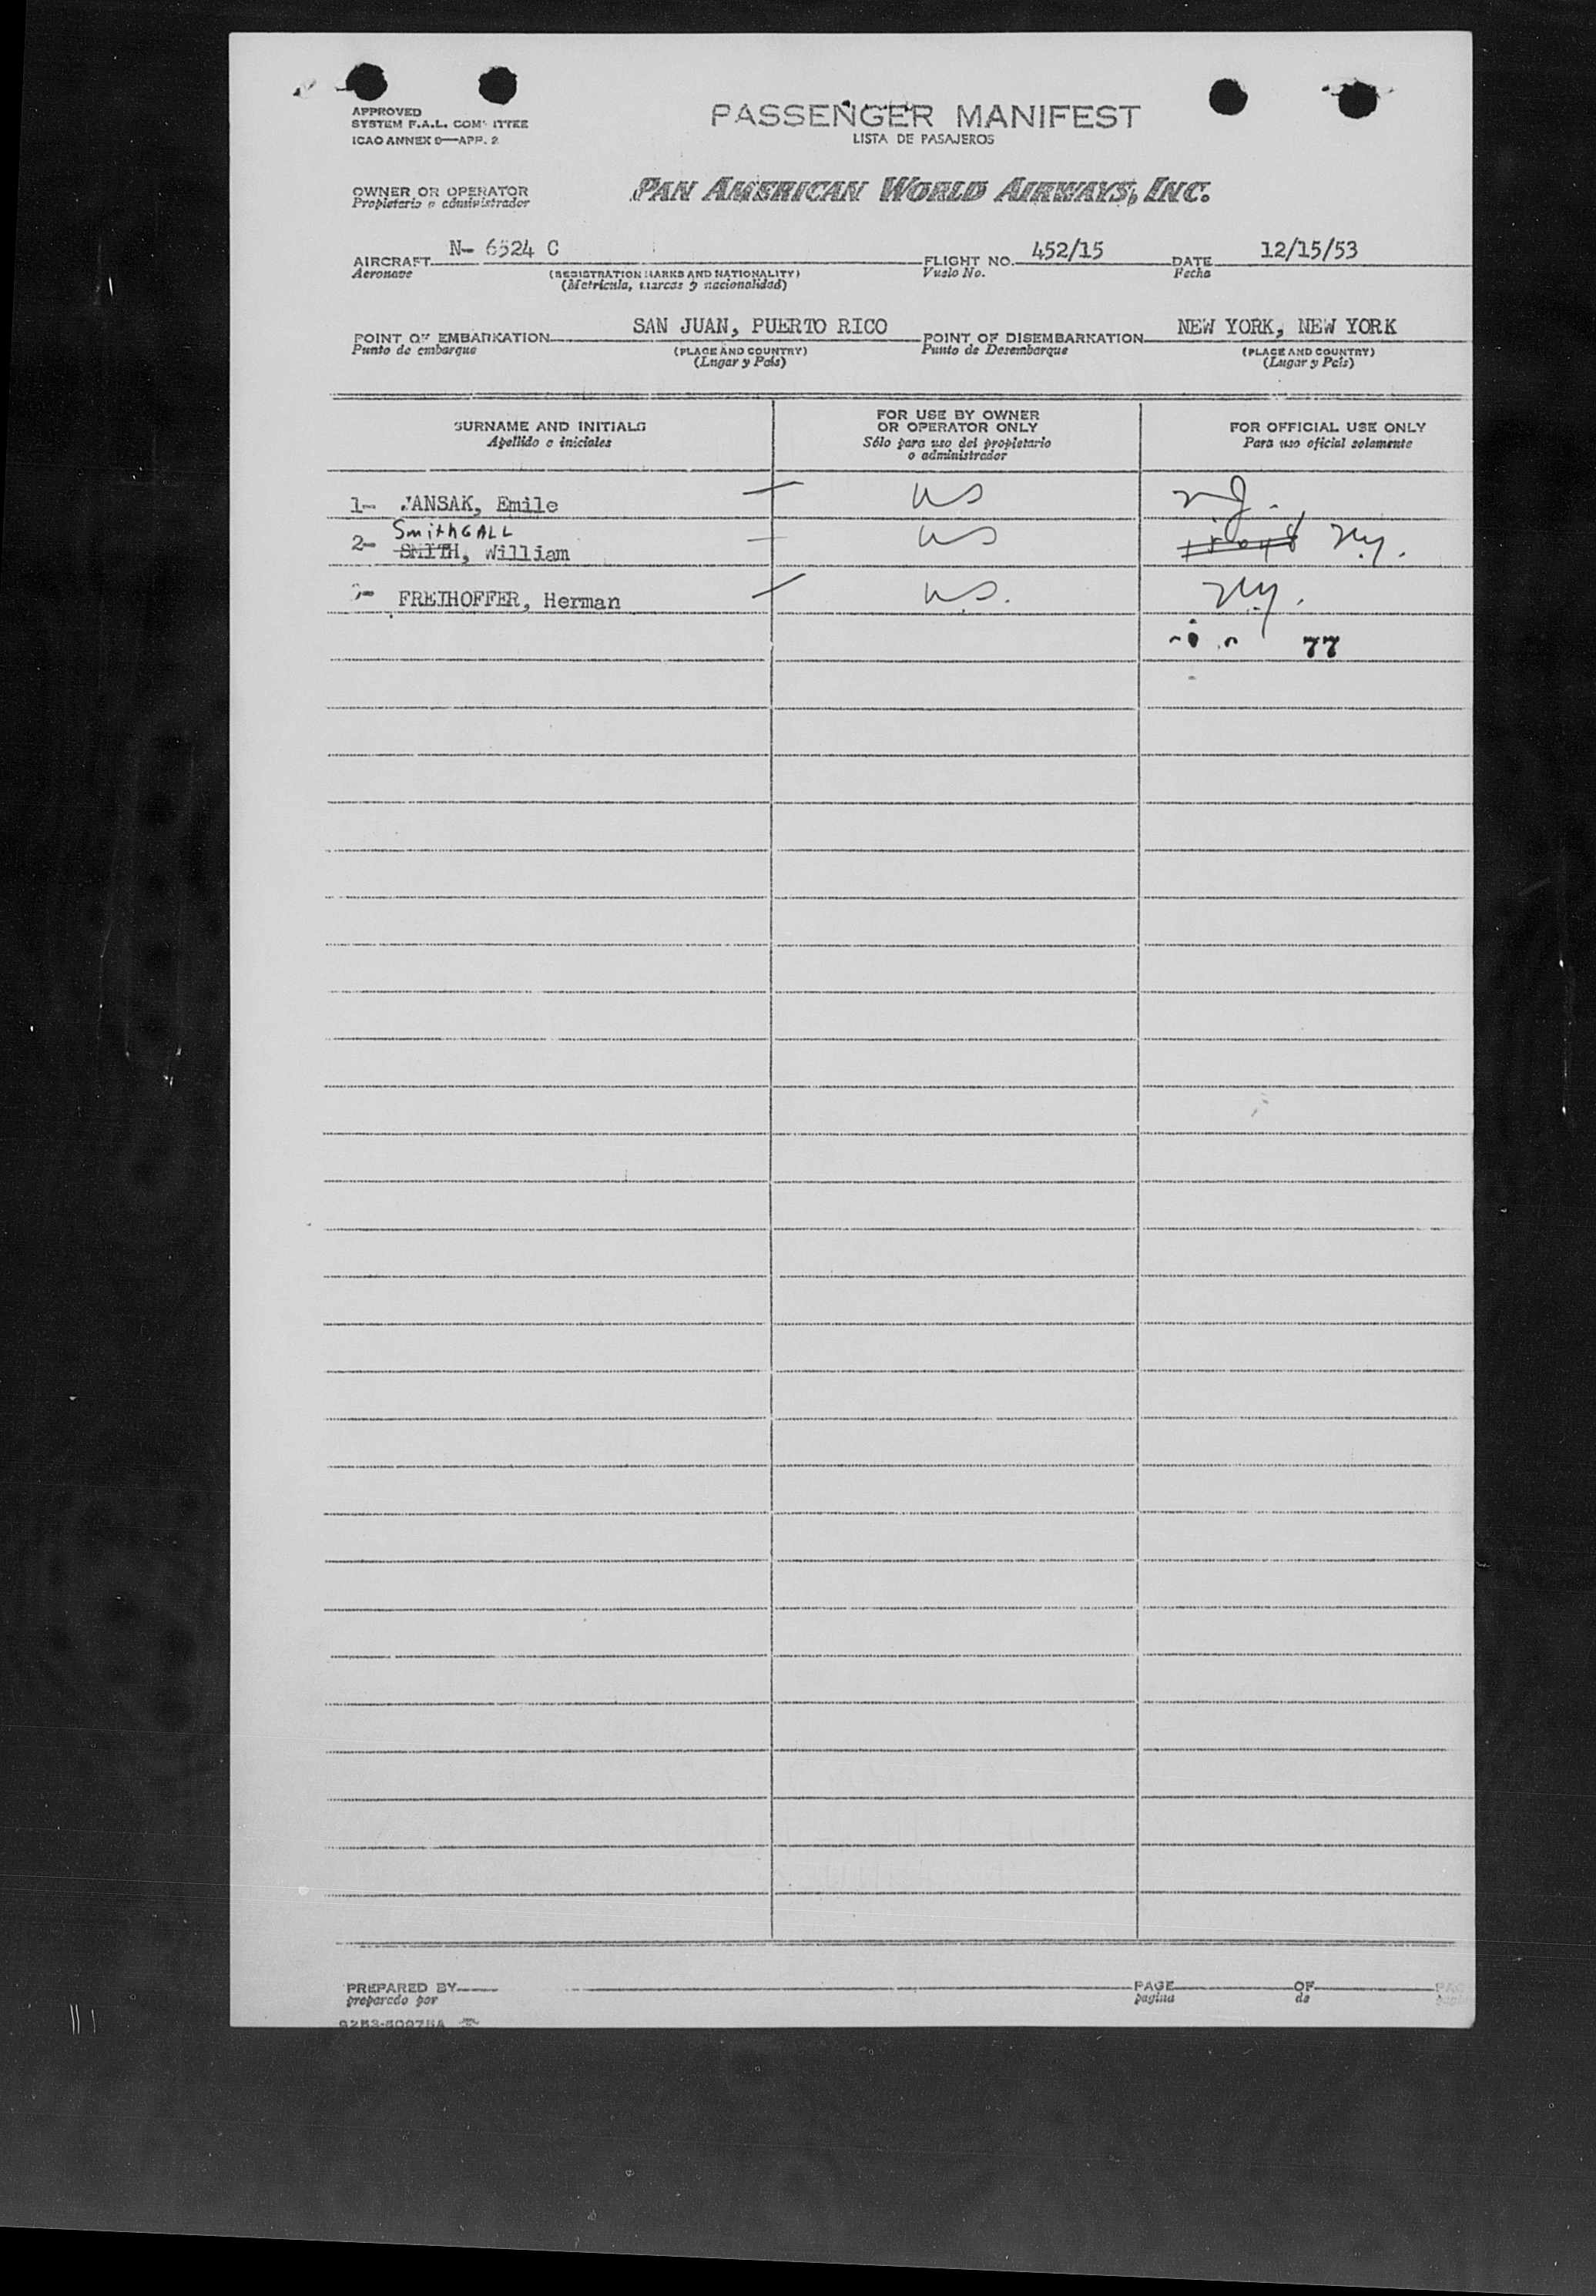 APPROVED
SYSTEM F.A.L. COMMITTEE
ICAO ANNEX 9—APP. 2
PASSENGER MANIFEST
LISTA DE PASAJEROS
OWNER OR OPERATOR
Propietario o administrador
PAN AMERICAN WORLD AIRWAYS, INC.
AIRCRAFT N- 6524 C FLIGHT NO. 452/15 DATE 12/15/53
Aeronave (REGISTRATION MARKS AND NATIONALITY) Vuelo No. Fecha
(Matricula, marcas y nacionalidad)
POINT OF EMBARKATION SAN JUAN, PUERTO RICO POINT OF DISEMBARKATION NEW YORK, NEW YORK
Punto de embarque (PLACE AND COUNTRY) Punto de Desembarque (PLACE AND COUNTRY)
(Lugar y País) (Lugar y País)
SURNAME AND INITIALS
Apellido e iniciales
FOR USE BY OWNER
OR OPERATOR ONLY
Sólo para uso del propietario
o administrador
FOR OFFICIAL USE ONLY
Para uso oficial solamente
1- JANSAK, Emile US N.J.
SmithGALL
2- SMITH, William US N.Y.
3- FREIHOFFER, Herman U.S. N.Y.
77
PREPARED BY PAGE OF
preparado por pagina de